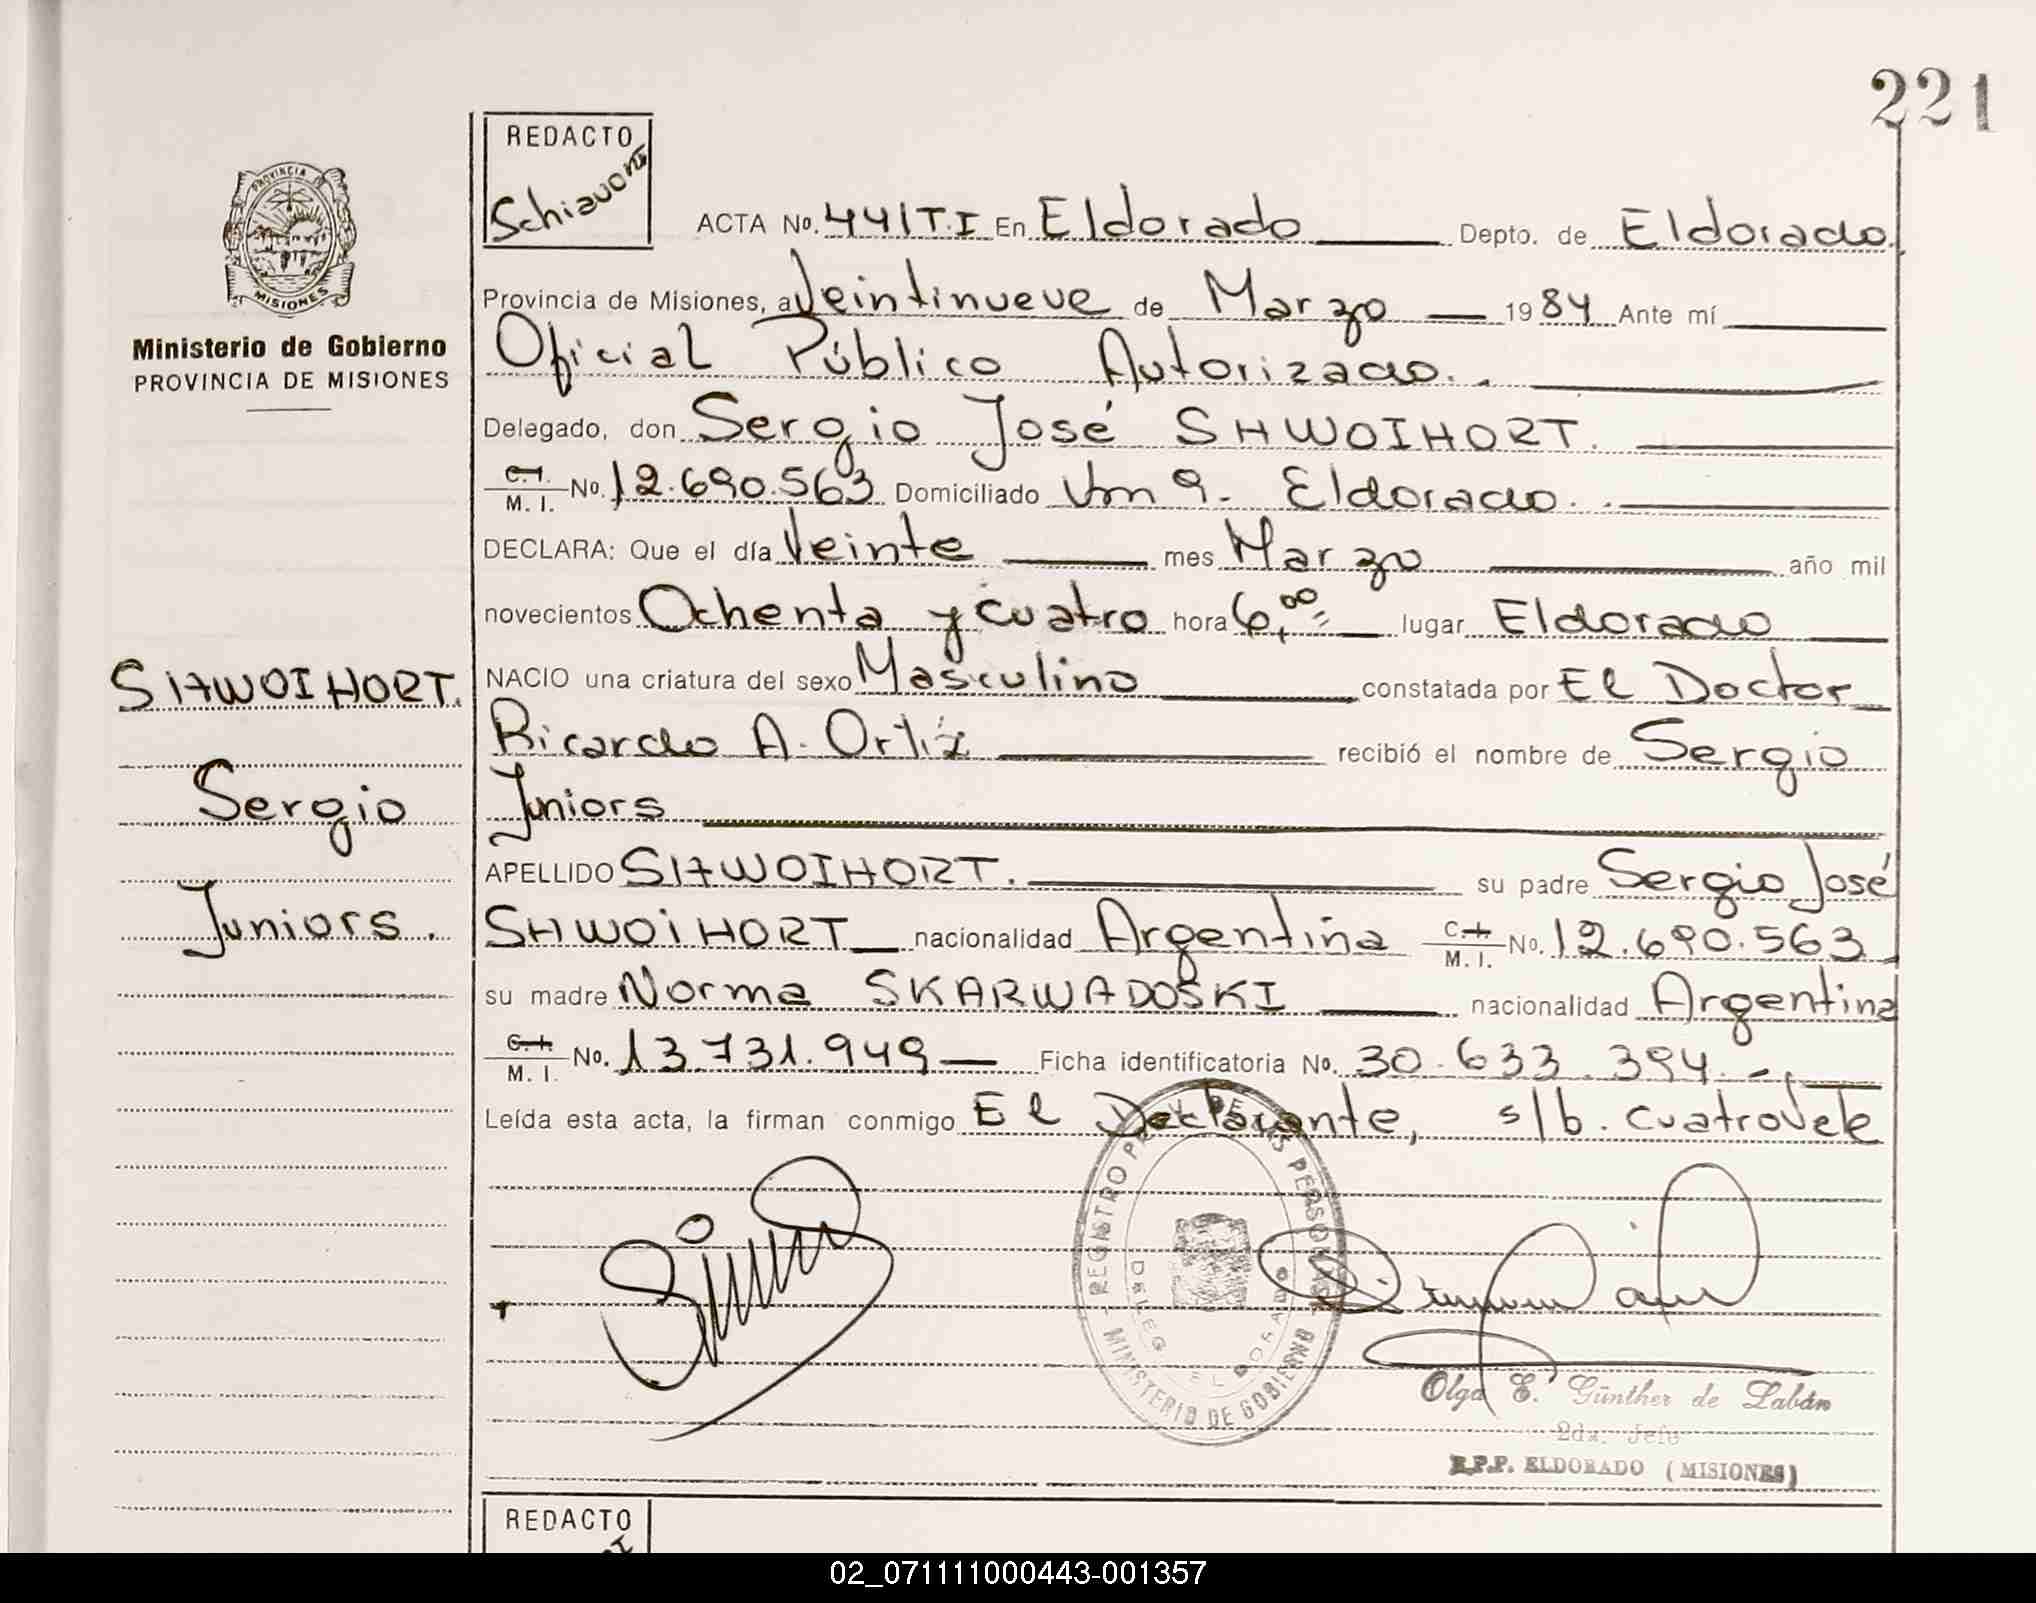 221
REDACTO
Schiavoni
PROVINCIA DE
MISIONES
Ministerio de Gobierno
PROVINCIA DE MISIONES
ACTA No. 441 T.I En Eldorado Depto. de Eldorado
Provincia de Misiones, a Veintinueve de Marzo 1984 Ante mí
Oficial Público Autorizado.
Delegado, don Sergio José SHWOIHORT.
C.I. M. I. No. 12.690.563 Domiciliado Km 9. Eldorado.
DECLARA: Que el día Veinte mes Marzo año mil
novecientos Ochenta y cuatro hora 6,00= lugar Eldorado
NACIO una criatura del sexo Masculino constatada por El Doctor
Ricardo A. Ortíz recibió el nombre de Sergio
Juniors
APELLIDO SHWOIHORT. su padre Sergio José
SHWOIHORT nacionalidad Argentina C.I. M. I. No. 12.690.563
su madre Norma SKARWADOSKI nacionalidad Argentina
C.I. M. I. No. 13.731.949 Ficha identificatoria No. 30.633.394.-
Leída esta acta, la firman conmigo El Declarante, s/b. cuatro Vete
SHWOIHORT.
Sergio
Juniors.
REGISTRO DE LAS PERSONAS
MINISTERIO DE GOBIERNO
DELEG ELDORADO
Olga E. Günther de Labán
2da. Jefe
R.P.P. ELDORADO (MISIONES)
REDACTO
02_071111000443-001357